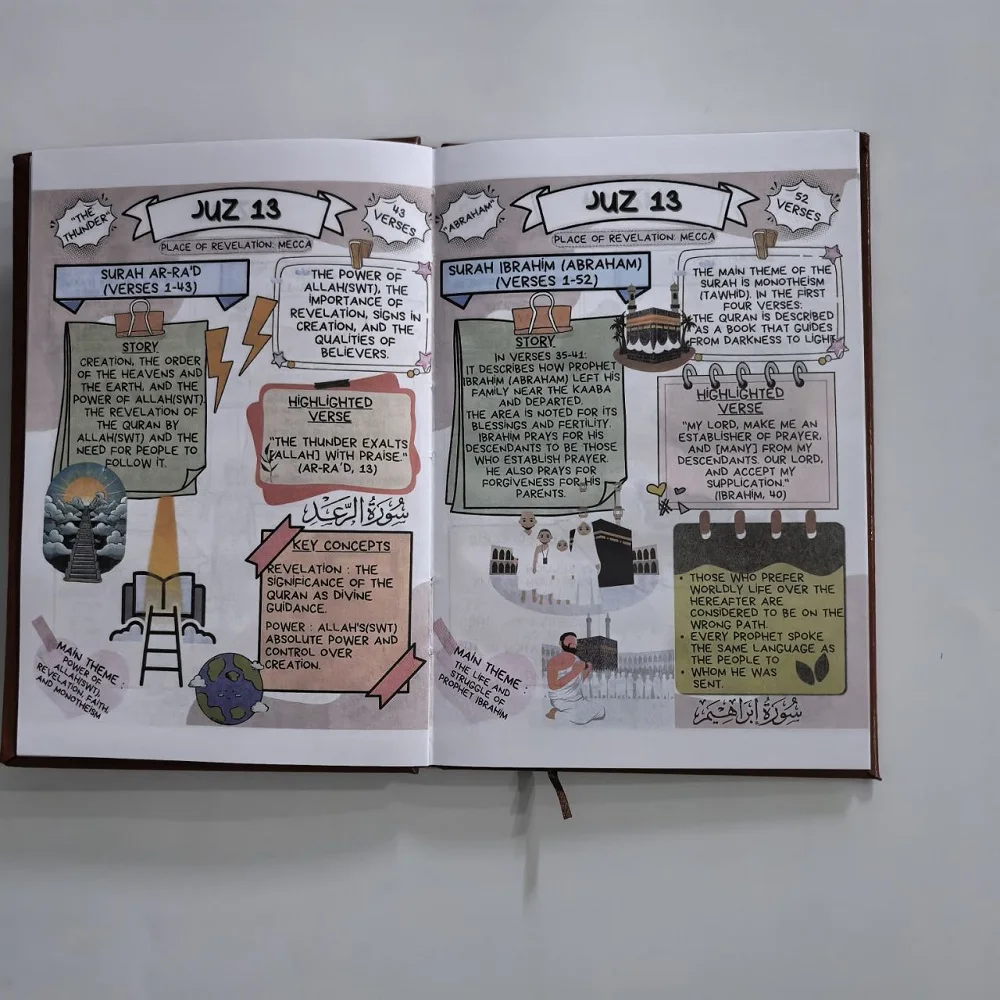 "THE
THUNDER"
JUZ 13
43
VERSES
PLACE OF REVELATION: MECCA
SURAH AR-RA'D
(VERSES 1-43)
THE POWER OF
ALLAH(SWT), THE
IMPORTANCE OF
REVELATION, SIGNS IN
CREATION, AND THE
QUALITIES OF
BELIEVERS.
STORY
CREATION, THE ORDER
OF THE HEAVENS AND
THE EARTH, AND THE
POWER OF ALLAH(SWT).
THE REVELATION OF
THE QURAN BY
ALLAH(SWT) AND THE
NEED FOR PEOPLE TO
FOLLOW IT.
HIGHLIGHTED
VERSE
"THE THUNDER EXALTS
[ALLAH] WITH PRAISE."
(AR-RA'D, 13)
سُورَةُ الرَّعْدِ
KEY CONCEPTS
REVELATION : THE
SIGNIFICANCE OF THE
QURAN AS DIVINE
GUIDANCE.
POWER : ALLAH'S(SWT)
ABSOLUTE POWER AND
CONTROL OVER
CREATION.
MAIN THEME :
POWER OF
ALLAH(SWT),
REVELATION, FAITH,
AND MONOTHEISM
"ABRAHAM"
JUZ 13
52
VERSES
PLACE OF REVELATION: MECCA
SURAH IBRAHİM (ABRAHAM)
(VERSES 1-52)
THE MAIN THEME OF THE
SURAH IS MONOTHEISM
(TAWHID). IN THE FIRST
FOUR VERSES:
THE QURAN IS DESCRIBED
AS A BOOK THAT GUIDES
FROM DARKNESS TO LIGHT.
STORY
IN VERSES 35-41:
IT DESCRIBES HOW PROPHET
IBRAHIM (ABRAHAM) LEFT HIS
FAMILY NEAR THE KAABA
AND DEPARTED.
THE AREA IS NOTED FOR ITS
BLESSINGS AND FERTILITY.
IBRAHIM PRAYS FOR HIS
DESCENDANTS TO BE THOSE
WHO ESTABLISH PRAYER.
HE ALSO PRAYS FOR
FORGIVENESS FOR HIS
PARENTS.
HIGHLIGHTED
VERSE
"MY LORD, MAKE ME AN
ESTABLISHER OF PRAYER,
AND [MANY] FROM MY
DESCENDANTS. OUR LORD,
AND ACCEPT MY
SUPPLICATION."
(IBRAHIM, 40)
• THOSE WHO PREFER
WORLDLY LIFE OVER THE
HEREAFTER ARE
CONSIDERED TO BE ON THE
WRONG PATH.
• EVERY PROPHET SPOKE
THE SAME LANGUAGE AS
THE PEOPLE TO
• WHOM HE WAS
SENT.
MAIN THEME :
THE LIFE AND
STRUGGLE OF
PROPHET IBRAHIM
سُورَةُ إِبْرَاهِيمَ